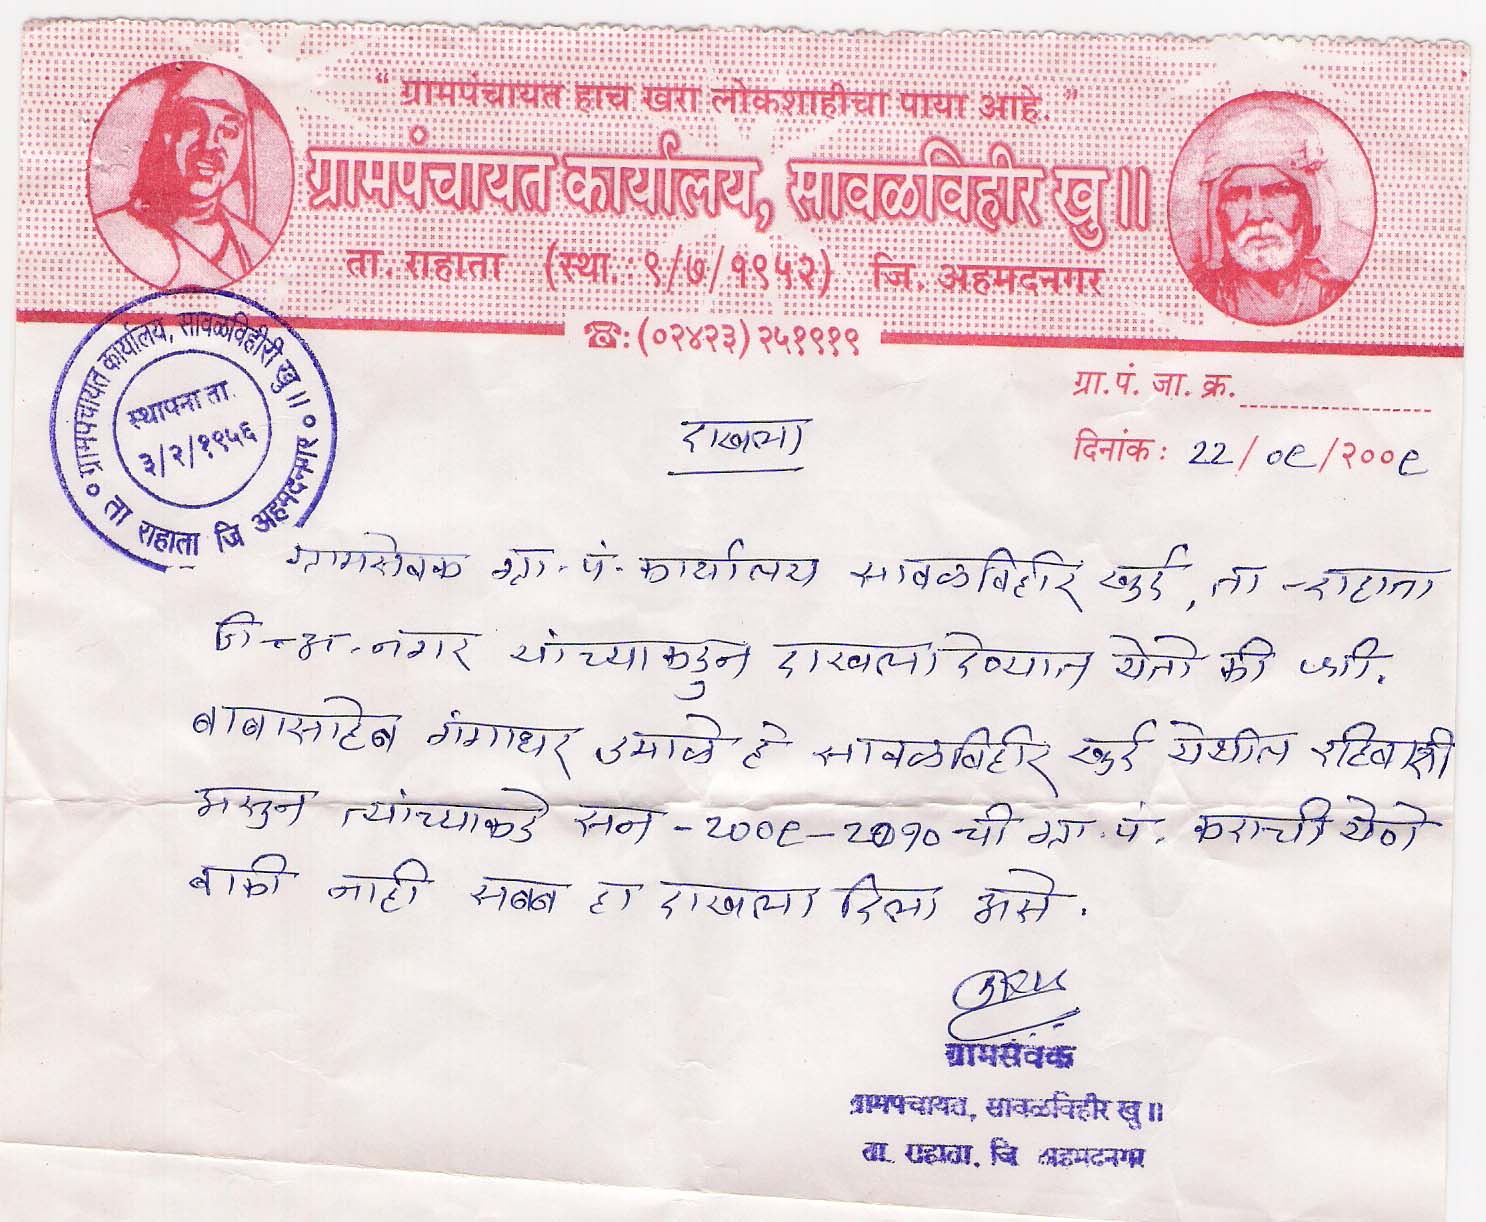 “ ग्रामपंचायत हाच खरा लोकशाहीचा पाया आहे. ”
ग्रामपंचायत कार्यालय, सावळविहीर खु॥
ता. राहाता (स्था. : ९/७/१९५२) जि. अहमदनगर
☎: (०२४२३) २५१९१९
ग्रा. पं. जा. क्र.
दिनांक : 22/०९/२००९
ग्रामपंचायत कार्यालय, सावळविहीरी खु॥
स्थापना ता.
३/२/१९५६
ता राहाता जि अहमदनगर
दाखला
ग्रामसेवक ग्रा. पं. कार्यालय सावळविहीर खुर्द, ता - राहाता
जि - अ. नगर यांच्याकडुन दाखला देण्यात येतो की श्री.
बाबासाहेब गंगाधर उमाळे हे सावळविहीर खुर्द येथील रहिवाशी
असुन त्यांच्याकडे सन - २००९ - २०१० ची ग्रा. पं. कराची येणे
बाकी नाही सबब हा दाखला दिला असे.
ग्रामसेवक
ग्रामपंचायत, सावळविहीर खु॥
ता. राहाता. जि अहमदनगर